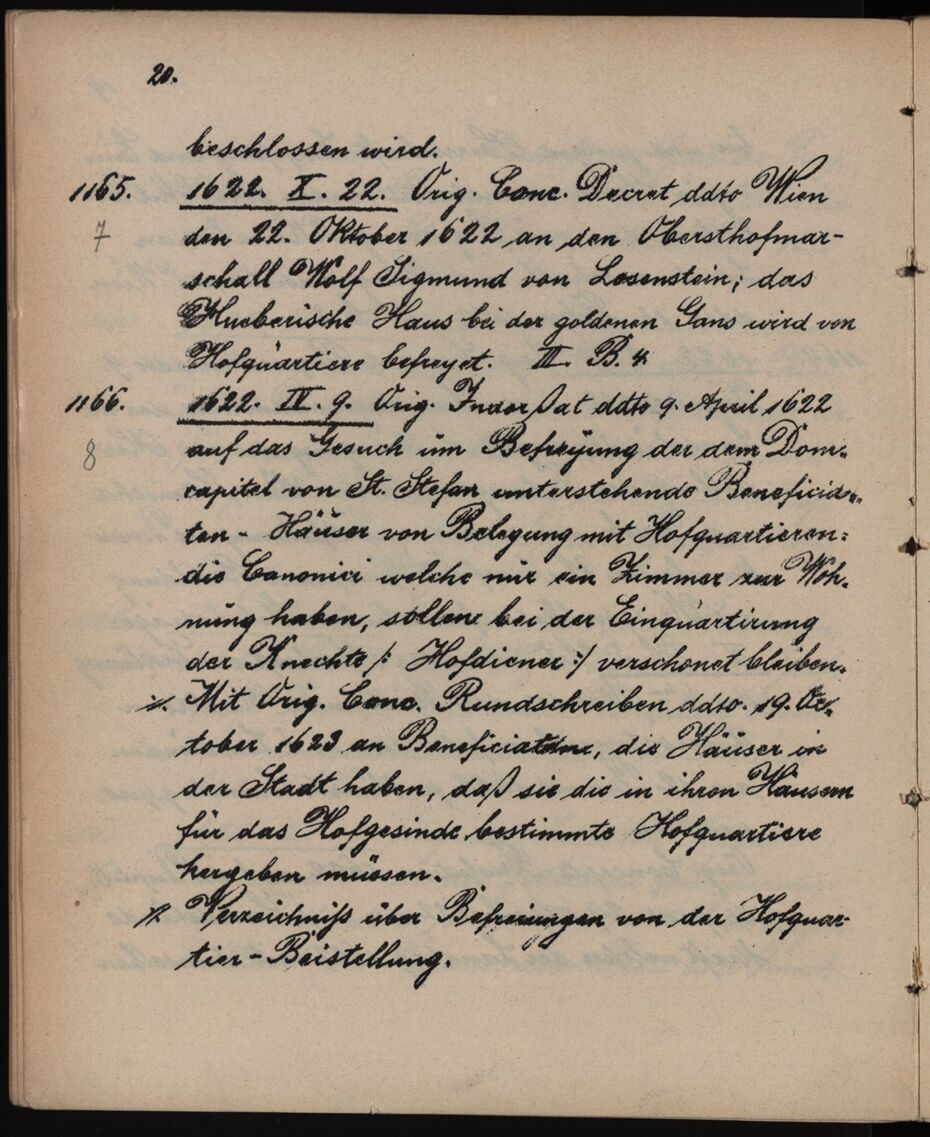 20.
beschlossen wird.
1165. 1622. X. 22. Orig. Conc. Decret ddto Wien
7 den 22. Oktober 1622 an den Obersthofmar-
schall Wolf Sigmund von Losenstein; das
Hueberische Haus bei der goldenen Gans wird von
Hofquartiere befreyet. III. B. 4.
1166. 1622. IV. 9. Orig. Indorßat ddto 9. April 1622
8 auf das Gesuch um Befreyung der dem Dom-
capitel von St. Stefan unterstehende Beneficia-
ten - Häuser von Belegung mit Hofquartieren:
die Canonici welche nur ein Zimmer zur Woh-
nung haben, sollen bei der Einquartirung
der Knechte /: Hofdiener :/ verschonet bleiben.
./. Mit Orig. Conc. Rundschreiben ddto. 19. Oc-
tober 1623 an Beneficiaten, die Häuser in
der Stadt haben, daß sie die in ihren Häusern
für das Hofgesinde bestimmte Hofquartiere
hergeben müssen.
./. Verzeichniß über Befreiungen von der Hofquar-
tier-Beistellung.